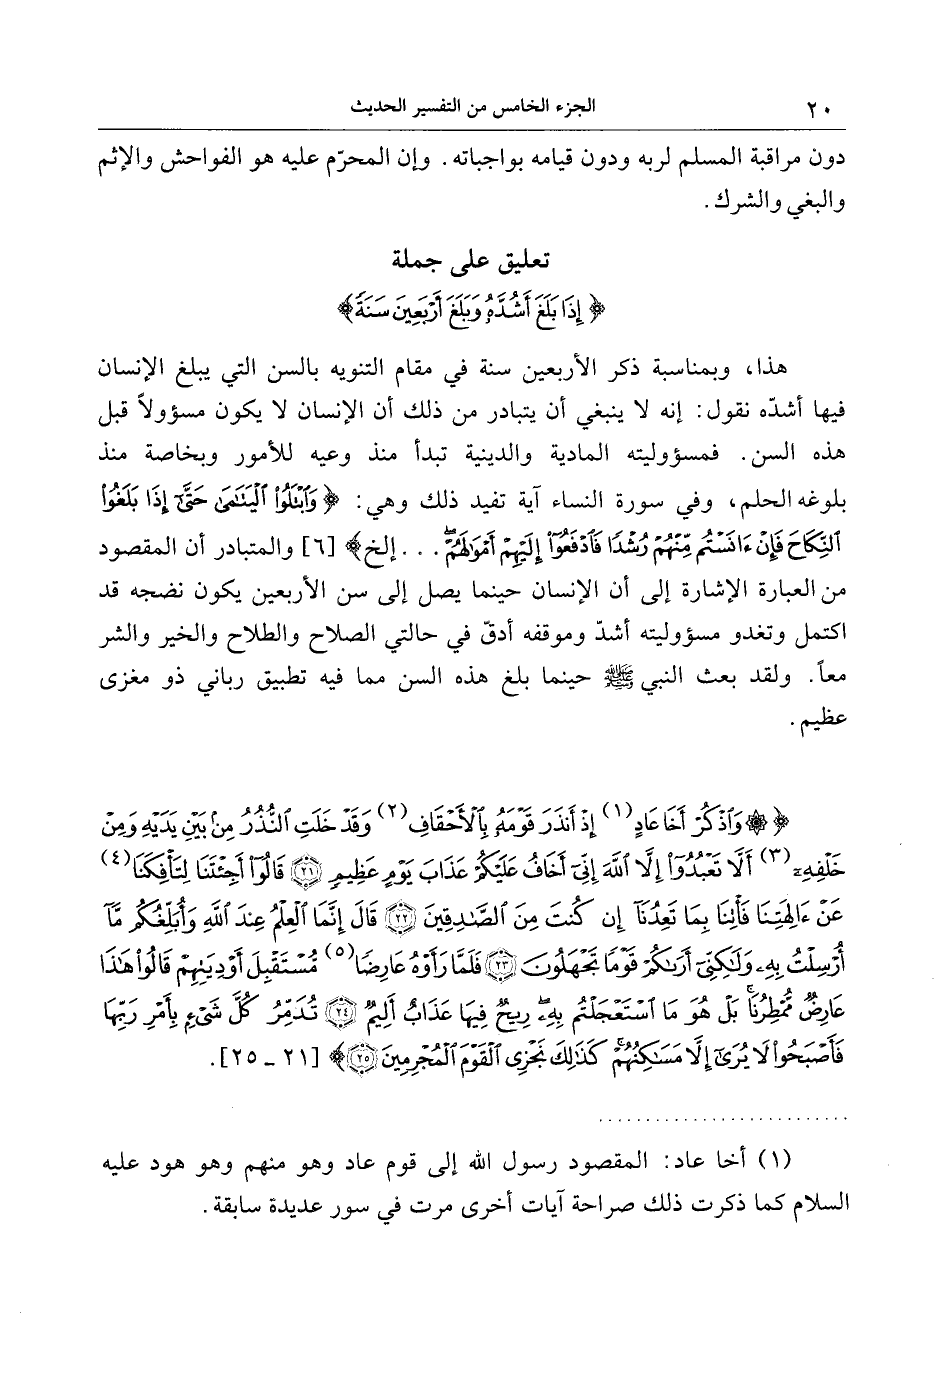 ٢٠ الجزء الخامس من التفسير الحديث
دون مراقبة المسلم لربه ودون قيامه بواجباته. وإن المحرّم عليه هو الفواحش والإثم
والبغي والشرك.
تعليق على جملة
﴿إِذَا بَلَغَ أَشُدَّهُۥ وَبَلَغَ أَرْبَعِينَ سَنَةً﴾
هذا، وبمناسبة ذكر الأربعين سنة في مقام التنويه بالسن التي يبلغ الإنسان
فيها أشدّه نقول: إنه لا ينبغي أن يتبادر من ذلك أن الإنسان لا يكون مسؤولاً قبل
هذه السن. فمسؤوليته المادية والدينية تبدأ منذ وعيه للأمور وبخاصة منذ
بلوغه الحلم، وفي سورة النساء آية تفيد ذلك وهي: ﴿وَٱبْتَلُوا۟ ٱلْيَتَـٰمَىٰ حَتَّىٰٓ إِذَا بَلَغُوا۟
ٱلنِّكَاحَ فَإِنْ ءَانَسْتُم مِّنْهُمْ رُشْدًا فَٱدْفَعُوٓا۟ إِلَيْهِمْ أَمْوَٰلَهُمْ ۖ . . . إلخ﴾ [٦] والمتبادر أن المقصود
من العبارة الإشارة إلى أن الإنسان حينما يصل إلى سن الأربعين يكون نضجه قد
اكتمل وتغدو مسؤوليته أشدّ وموقفه أدقّ في حالتي الصلاح والطلاح والخير والشر
معاً. ولقد بعث النبي ﷺ حينما بلغ هذه السن مما فيه تطبيق رباني ذو مغزى
عظيم.
﴿۞ وَٱذْكُرْ أَخَا عَادٍ(١) إِذْ أَنذَرَ قَوْمَهُۥ بِٱلْأَحْقَافِ(٢) وَقَدْ خَلَتِ ٱلنُّذُرُ مِنۢ بَيْنِ يَدَيْهِ وَمِنْ
خَلْفِهِۦٓ(٣) أَلَّا تَعْبُدُوٓا۟ إِلَّا ٱللَّهَ إِنِّىٓ أَخَافُ عَلَيْكُمْ عَذَابَ يَوْمٍ عَظِيمٍ ﴿٢١﴾ قَالُوٓا۟ أَجِئْتَنَا لِتَأْفِكَنَا(٤)
عَنْ ءَالِهَتِنَا فَأْتِنَا بِمَا تَعِدُنَآ إِن كُنتَ مِنَ ٱلصَّـٰدِقِينَ ﴿٢٢﴾ قَالَ إِنَّمَا ٱلْعِلْمُ عِندَ ٱللَّهِ وَأُبَلِّغُكُم مَّآ
أُرْسِلْتُ بِهِۦ وَلَـٰكِنِّىٓ أَرَىٰكُمْ قَوْمًا تَجْهَلُونَ ﴿٢٣﴾ فَلَمَّا رَأَوْهُ عَارِضًا(٥) مُّسْتَقْبِلَ أَوْدِيَتِهِمْ قَالُوا۟ هَـٰذَا
عَارِضٌ مُّمْطِرُنَا ۚ بَلْ هُوَ مَا ٱسْتَعْجَلْتُم بِهِۦ ۖ رِيحٌ فِيهَا عَذَابٌ أَلِيمٌ ﴿٢٤﴾ تُدَمِّرُ كُلَّ شَىْءٍۭ بِأَمْرِ رَبِّهَا
فَأَصْبَحُوا۟ لَا يُرَىٰٓ إِلَّا مَسَـٰكِنُهُمْ ۚ كَذَٰلِكَ نَجْزِى ٱلْقَوْمَ ٱلْمُجْرِمِينَ ﴿٢٥﴾﴾ [٢١ ـ ٢٥].
. . . . . . . . . . . . . . . . . . . . . . . . . .
(١) أخا عاد: المقصود رسول الله إلى قوم عاد وهو منهم وهو هود عليه
السلام كما ذكرت ذلك صراحة آيات أخرى مرت في سور عديدة سابقة.